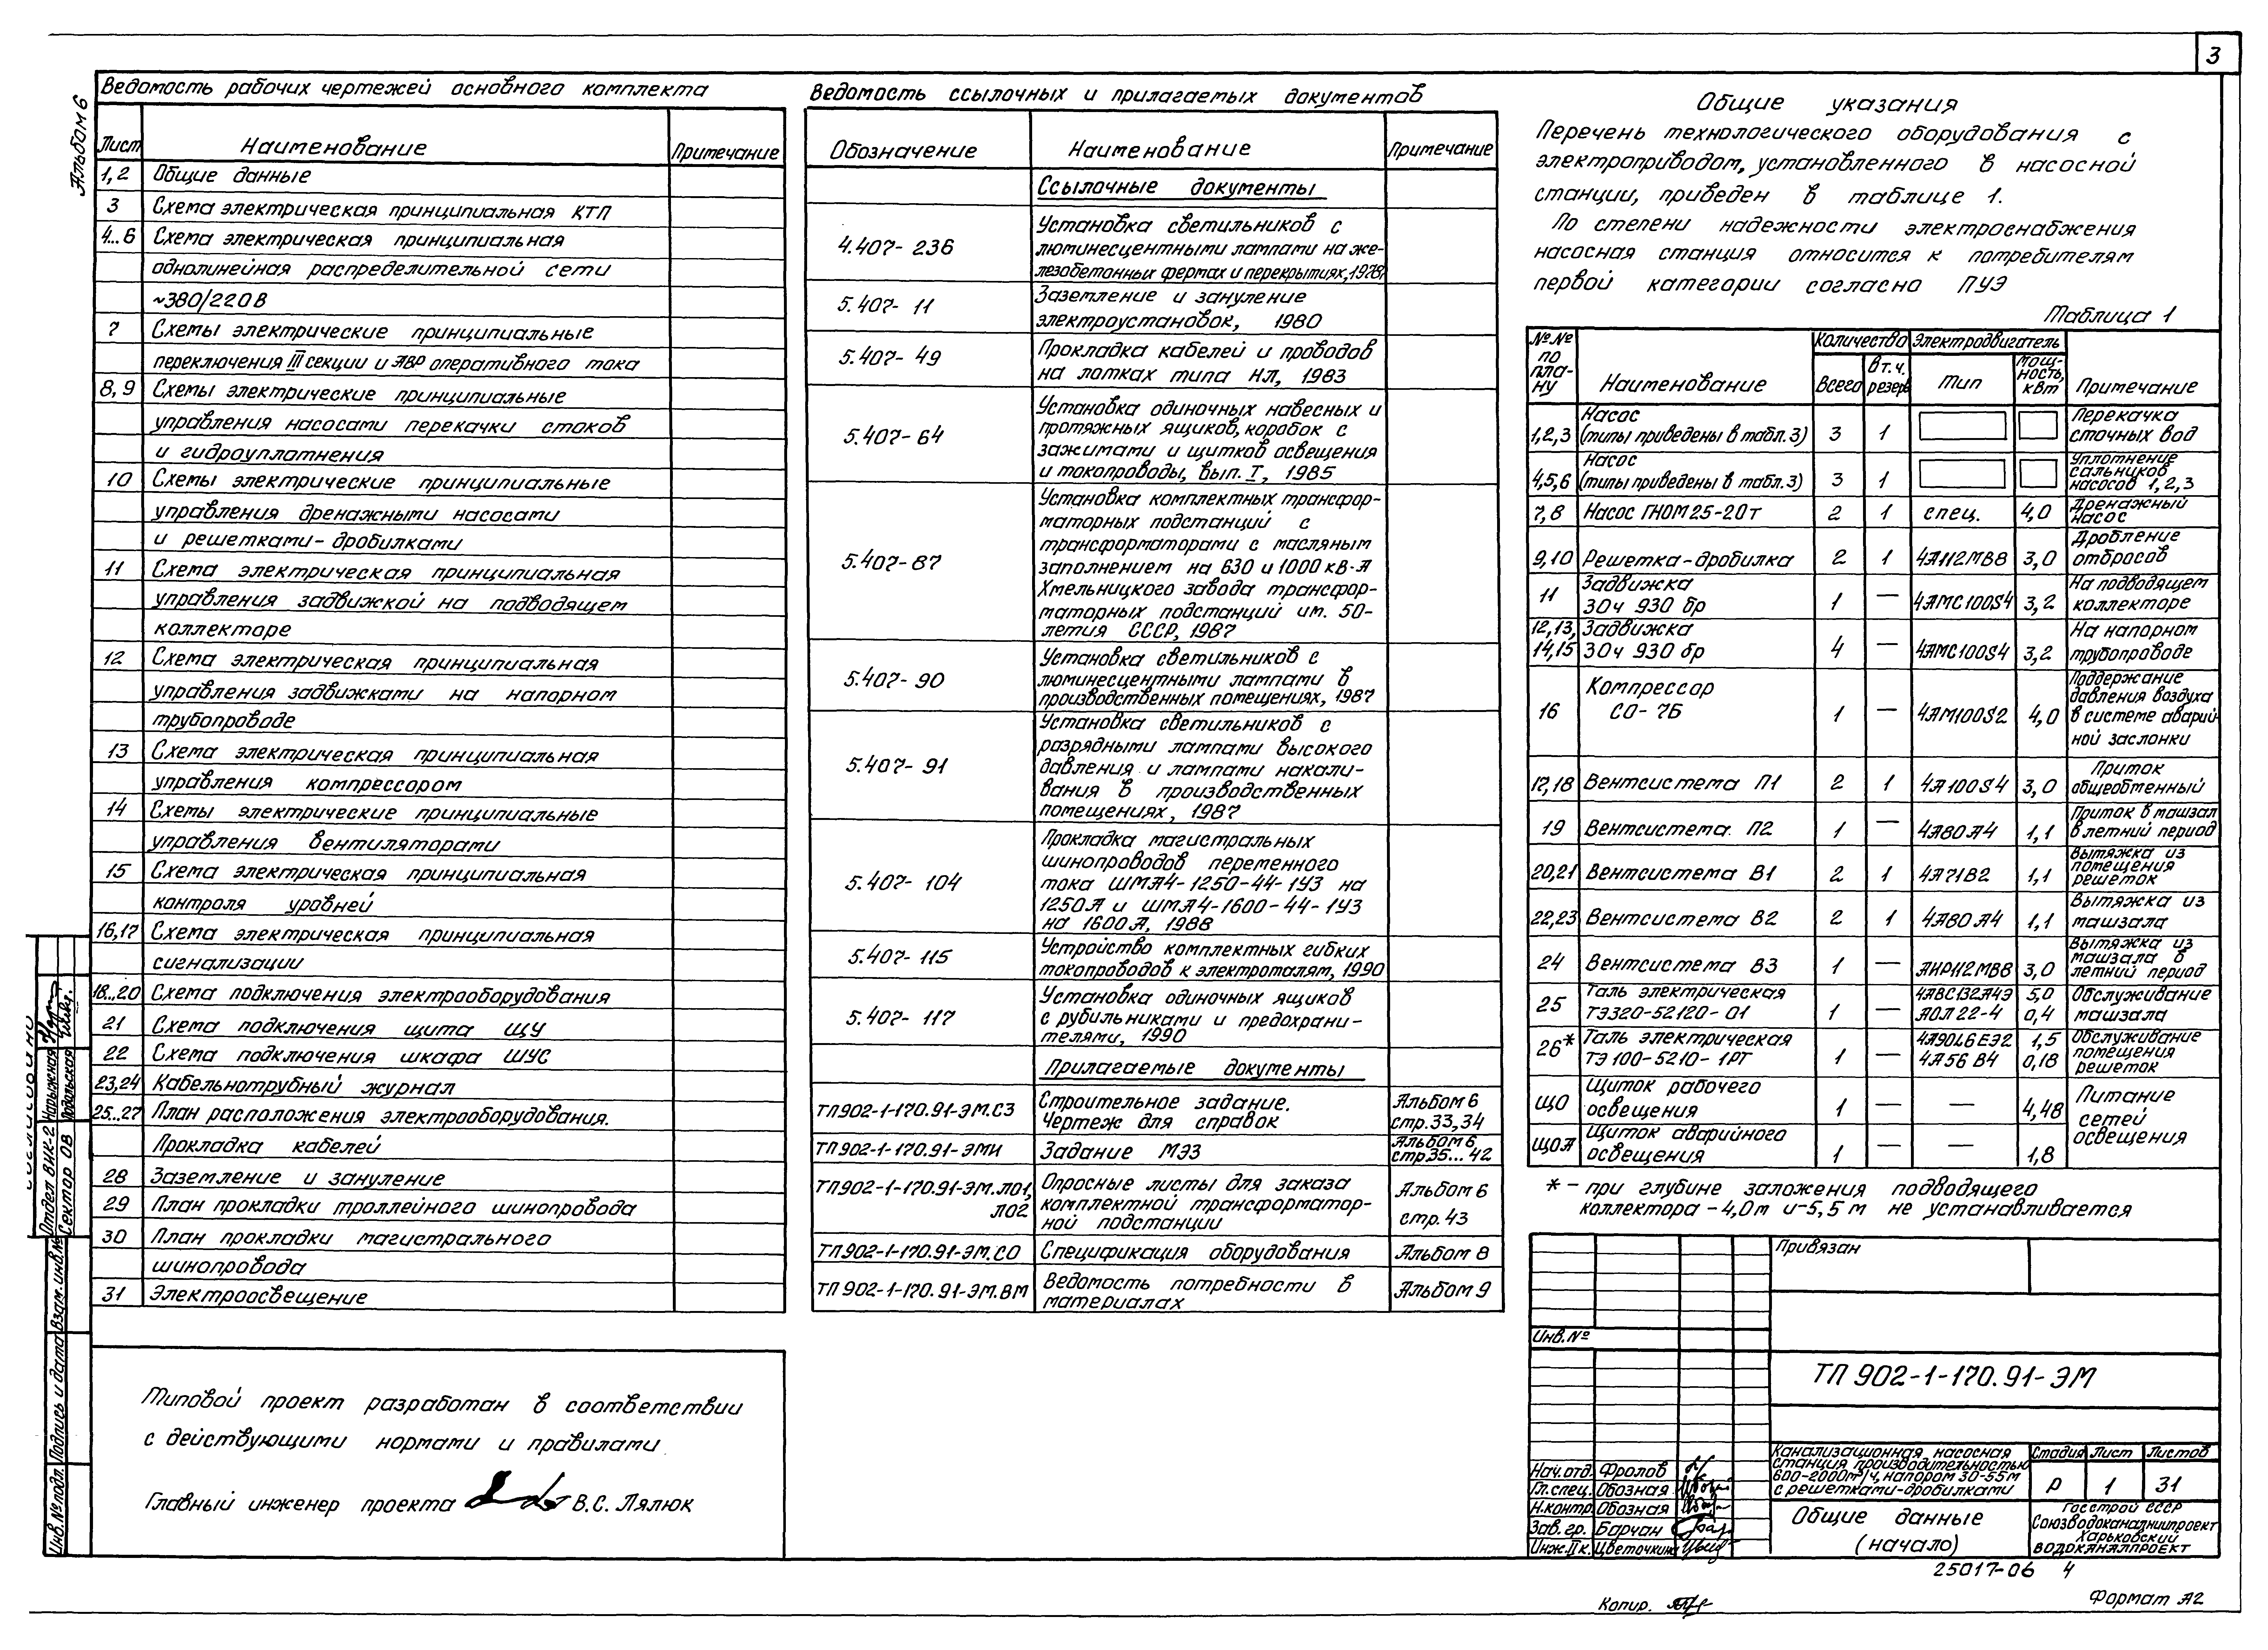 3
Альбом 6
Ведомость рабочих чертежей основного комплекта
Лист Наименование Примечание
1,2 Общие данные
3 Схема электрическая принципиальная КТП
4...6 Схема электрическая принципиальная
однолинейная распределительной сети
~380/220В
7 Схемы электрические принципиальные
переключения III секции и АВР оперативного тока
8,9 Схемы электрические принципиальные
управления насосами перекачки стоков
и гидроуплотнения
10 Схемы электрические принципиальные
управления дренажными насосами
и решетками-дробилками
11 Схема электрическая принципиальная
управления задвижкой на подводящем
коллекторе
12 Схема электрическая принципиальная
управления задвижками на напорном
трубопроводе
13 Схема электрическая принципиальная
управления компрессором
14 Схемы электрические принципиальные
управления вентиляторами
15 Схема электрическая принципиальная
контроля уровней
16,17 Схема электрическая принципиальная
сигнализации
18...20 Схема подключения электрооборудования
21 Схема подключения щита ЩУ
22 Схема подключения шкафа ШУС
23,24 Кабельнотрубный журнал
25...27 План расположения электрооборудования.
Прокладка кабелей
28 Заземление и зануление
29 План прокладки троллейного шинопровода
30 План прокладки магистрального
шинопровода
31 Электроосвещение
Типовой проект разработан в соответствии
с действующими нормами и правилами
Главный инженер проекта В.С. Лялюк
Ведомость ссылочных и прилагаемых документов
Обозначение Наименование Примечание
Ссылочные документы
4.407-236 Установка светильников с
люминесцентными лампами на же-
лезобетонных фермах и перекрытиях, 1978г
5.407-11 Заземление и зануление
электроустановок, 1980
5.407-49 Прокладка кабелей и проводов
на лотках типа НЛ, 1983
5.407-64 Установка одиночных навесных и
протяжных ящиков, коробок с
зажимами и щитков освещения
и токопроводы, вып. I, 1985
5.407-87 Установка комплектных трансфор-
маторных подстанций с
трансформаторами с масляным
заполнением на 630 и 1000 кВ·А
Хмельницкого завода трансфор-
маторных подстанций им. 50-
летия СССР, 1987
5.407-90 Установка светильников с
люминесцентными лампами в
производственных помещениях, 1987
5.407-91 Установка светильников с
разрядными лампами высокого
давления и лампами накали-
вания в производственных
помещениях, 1987
5.407-104 Прокладка магистральных
шинопроводов переменного
тока ШМА4-1250-44-1У3 на
1250А и ШМА4-1600-44-1У3
на 1600А, 1988
5.407-115 Устройство комплектных гибких
токопроводов к электроталям, 1990
5.407-117 Установка одиночных ящиков
с рубильниками и предохрани-
телями, 1990
Прилагаемые документы
ТП902-1-170.91-ЭМ.С3 Строительное задание. Альбом 6
Чертеж для справок стр.33,34
ТП902-1-170.91-ЭМИ Задание МЭЗ Альбом 6, стр.35...42
ТП902-1-170.91-ЭМ.ЛО1, ЛО2 Опросные листы для заказа Альбом 6
комплектной трансформатор- стр.43
ной подстанции
ТП902-1-170.91-ЭМ.СО Спецификация оборудования Альбом 8
ТП902-1-170.91-ЭМ.ВМ Ведомость потребности в Альбом 9
материалах
Общие указания
Перечень технологического оборудования с
электроприводом, установленного в насосной
станции, приведен в таблице 1.
По степени надежности электроснабжения
насосная станция относится к потребителям
первой категории согласно ПУЭ
Таблица 1
№№ по плану Наименование Количество Всего В т.ч. резерв Электродвигатель Тип Мощность, кВт Примечание
1,2,3 Насос (типы приведены в табл.3) 3 1 Перекачка сточных вод
4,5,6 Насос (типы приведены в табл.3) 3 1 Уплотнение сальников насосов 1,2,3
7,8 Насос ГНОМ 25-20т 2 1 спец. 4,0 Дренажный насос
9,10 Решетка-дробилка 2 1 4А112МВ8 3,0 Дробление отбросов
11 Задвижка 30ч 930 бр 1 — 4АМС100S4 3,2 На подводящем коллекторе
12,13, 14,15 Задвижка 30ч 930 бр 4 — 4АМС100S4 3,2 На напорном трубопроводе
16 Компрессор СО-7Б 1 — 4АМ100S2 4,0 Поддержание давления воздуха в системе аварий-ной заслонки
17,18 Вентсистема П1 2 1 4А100S4 3,0 Приток общеобменный
19 Вентсистема П2 1 — 4А80А4 1,1 Приток в машзал в летний период
20,21 Вентсистема В1 2 1 4А71В2 1,1 Вытяжка из помещения решеток
22,23 Вентсистема В2 2 1 4А80А4 1,1 Вытяжка из машзала
24 Вентсистема В3 1 — АИР112МВ8 3,0 Вытяжка из машзала в летний период
25 Таль электрическая ТЭ320-52120-01 1 — 4АВС132А4Э 5,0 АОЛ22-4 0,4 Обслуживание машзала
26* Таль электрическая ТЭ100-5210-1РТ 1 — 4А90L6ЕЭ2 1,5 4А56В4 0,18 Обслуживание помещения решеток
ЩО Щиток рабочего освещения 1 — — 4,48 Питание сетей освещения
ЩОА Щиток аварийного освещения 1 — — 1,8
* – при глубине заложения подводящего
коллектора -4,0м и -5,5 м не устанавливается
Привязан
Инв.№
ТП 902-1-170.91-ЭМ
Канализационная насосная
станция производительностью
600-2000м³/ч, напором 30-55м
с решетками-дробилками
Стадия Лист Листов
Р 1 31
Нач.отд. Фролов
Гл.спец. Обозная
Н.контр. Обозная
Зав.гр. Барчан
Инж.IIк. Цветочкина
Общие данные
(начало)
Госстрой СССР
Союзводоканалниипроект
Харьковский
Водоканалпроект
25017-06 4
Копир.
Формат А2
Отдел ВНК-2 Нарыжная
Сектор ОВ Подольская
Инв.№ подл. Подпись и дата Взам.инв.№